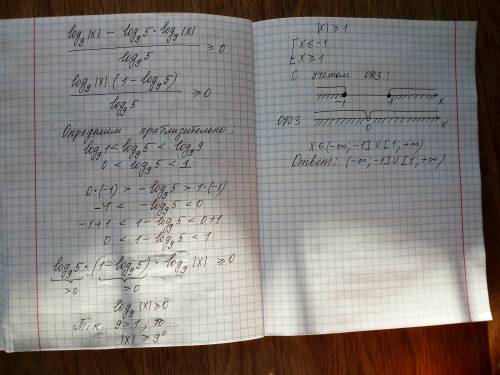 log₉|x| − log₉5 · log₉|x| / log₉5 ≥ 0
log₉|x| (1 − log₉5) / log₉5 ≥ 0
Определим приблизительно:
log₉1 < log₉5 < log₉9
0 < log₉5 < 1
0·(-1) > −log₉5 > 1·(-1)
−1 < −log₉5 < 0
−1+1 < 1−log₉5 < 0+1
0 < 1−log₉5 < 1
log₉5 · (1−log₉5) · log₉|x| ≥ 0
>0 >0
log₉|x| ≥ 0
Т.к. 9>1, то
|x| ≥ 9⁰
|x| ≥ 1
[ x ≤ -1
x ≥ 1
С учетом ОДЗ:
-1 1 x
ОДЗ
0 x
x∈(-∞,-1]∪[1,+∞)
Ответ: (-∞,-1]∪[1,+∞)